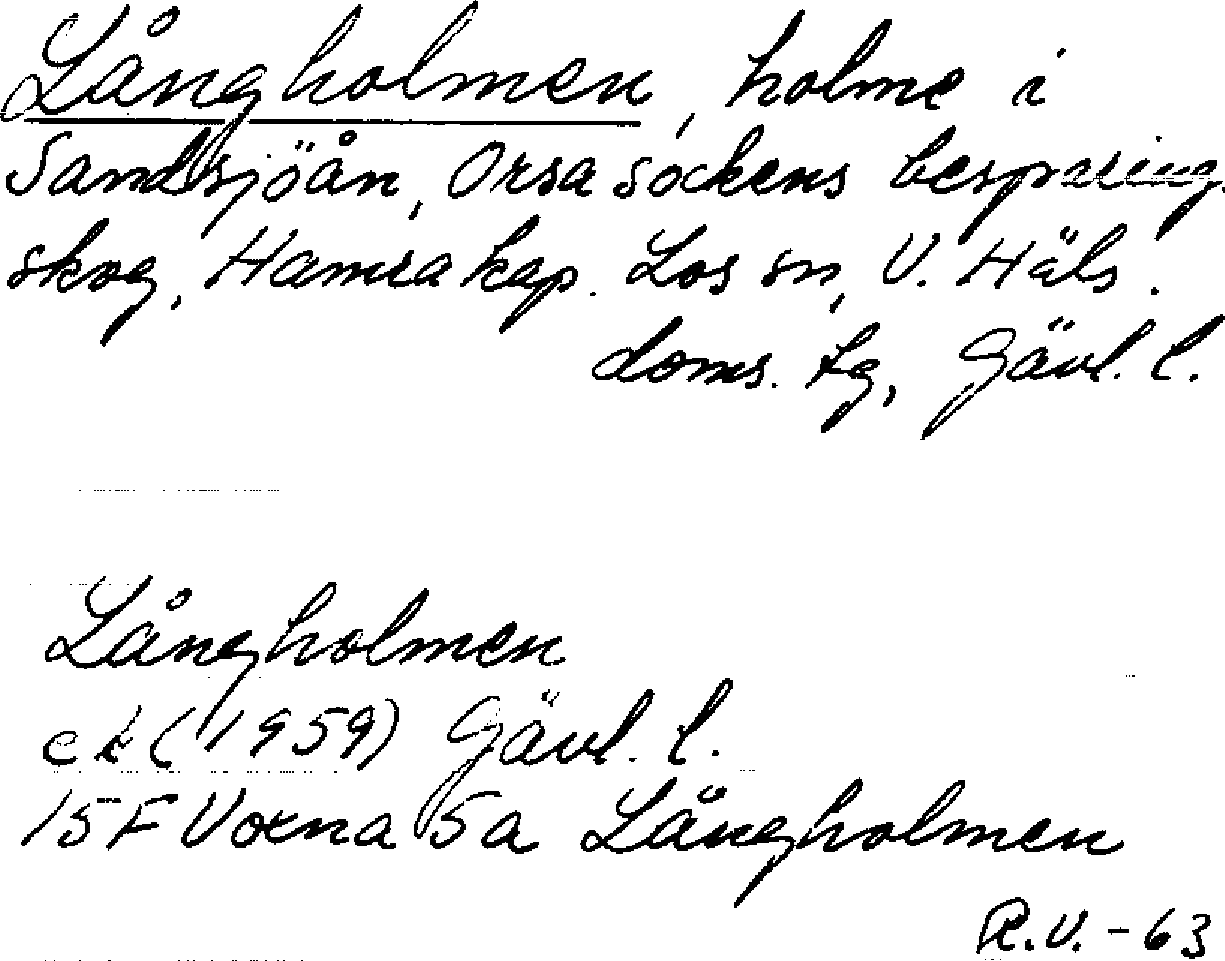 Långholmen, holme i
Sandsjöån, Orsa sockens besparing.
skog, Hamra kap. Los sn, V. Häls.
doms. tg, Gävl. l.
Långholmen
ek (1959) Gävl. l.
15F Voxna 5a Långholmen
R.V. - 63